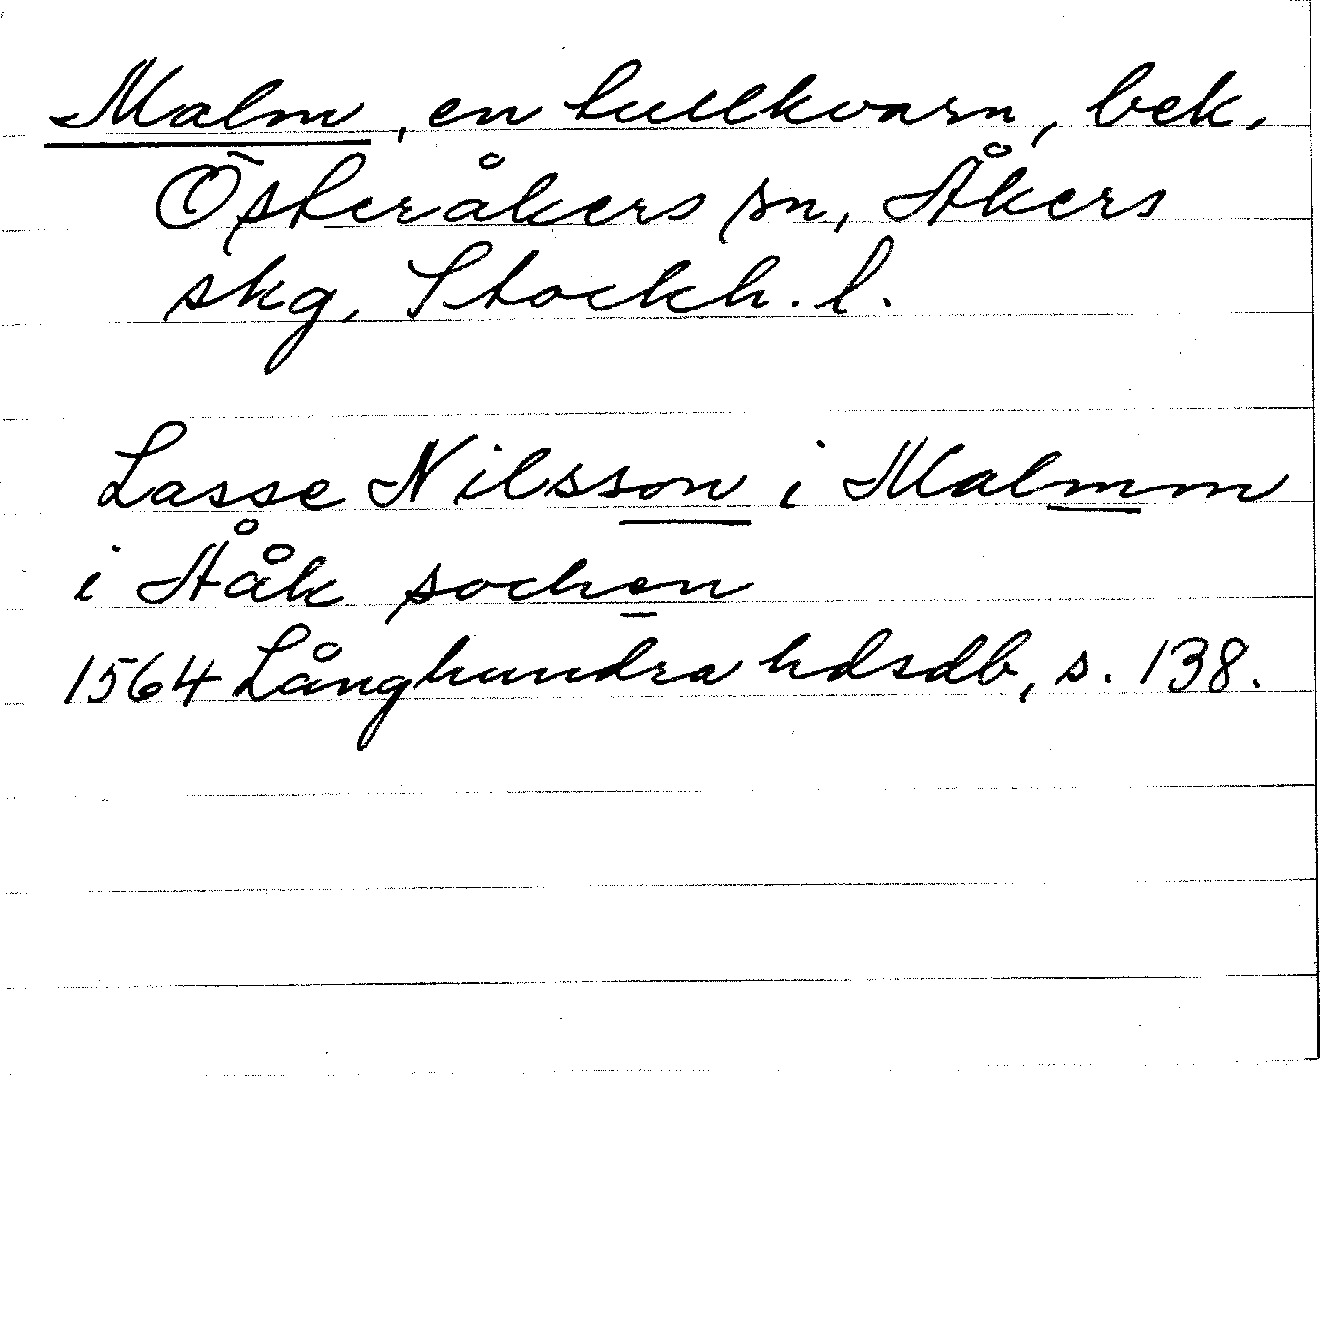 Malm, en tullkvarn, bek.
Österåkers sn, Åkers
skg, Stockh. l.
Lasse Nilsson i Malmm
i Ååk sochen
1564 Långhundra hdsdb, s. 138.